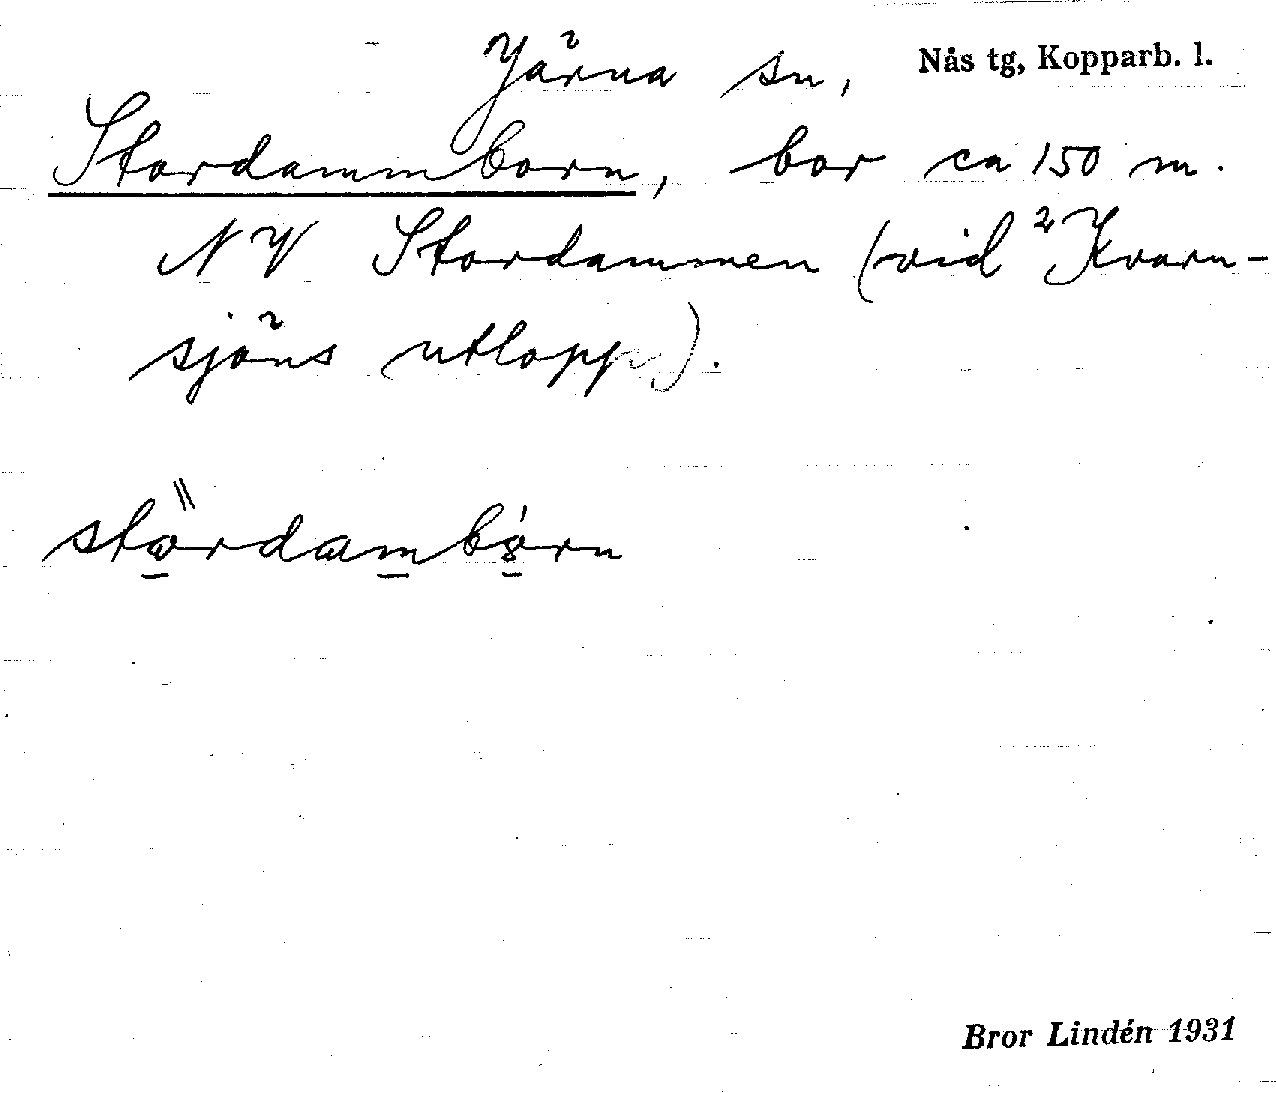 Järna sn, Nås tg, Kopparb. l.
Stordammborn, bor ca 150 m.
NV Stordammen (vid ²Kvarn-
sjöns utlopp).
Bror Lindén 1931